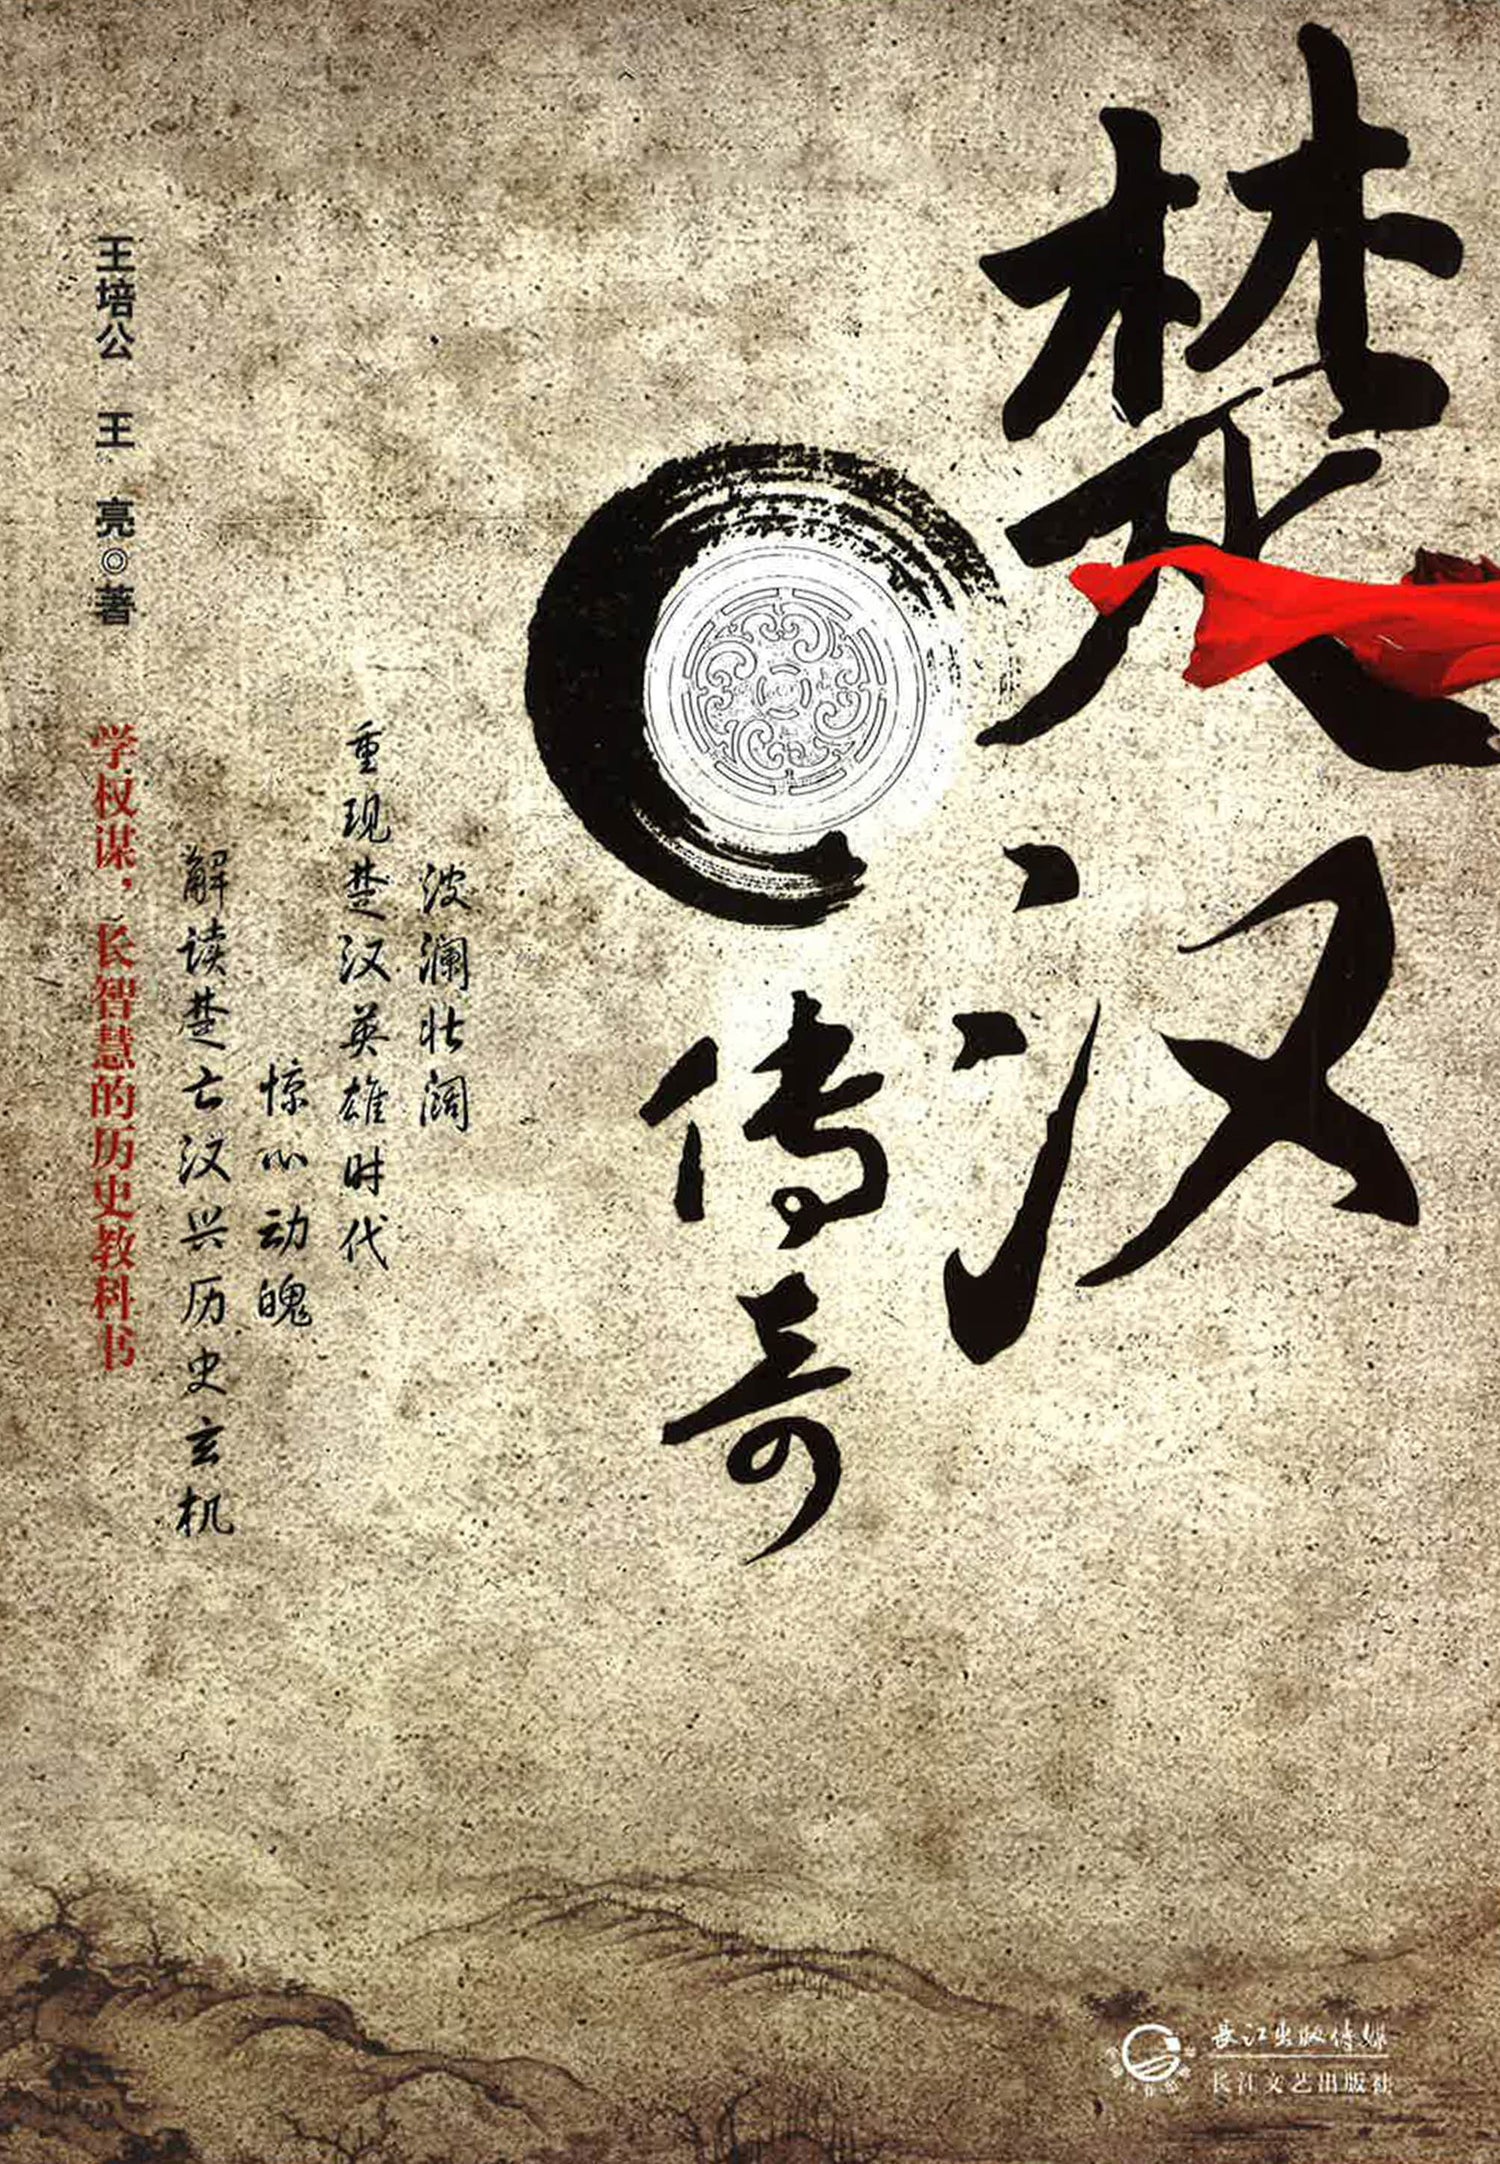 楚汉
传奇
波澜壮阔
重现楚汉英雄时代
惊心动魄
解读楚亡汉兴历史玄机
学权谋，长智慧的历史教科书
王培公 王 亮◎著
長江出版传媒
长江文艺出版社